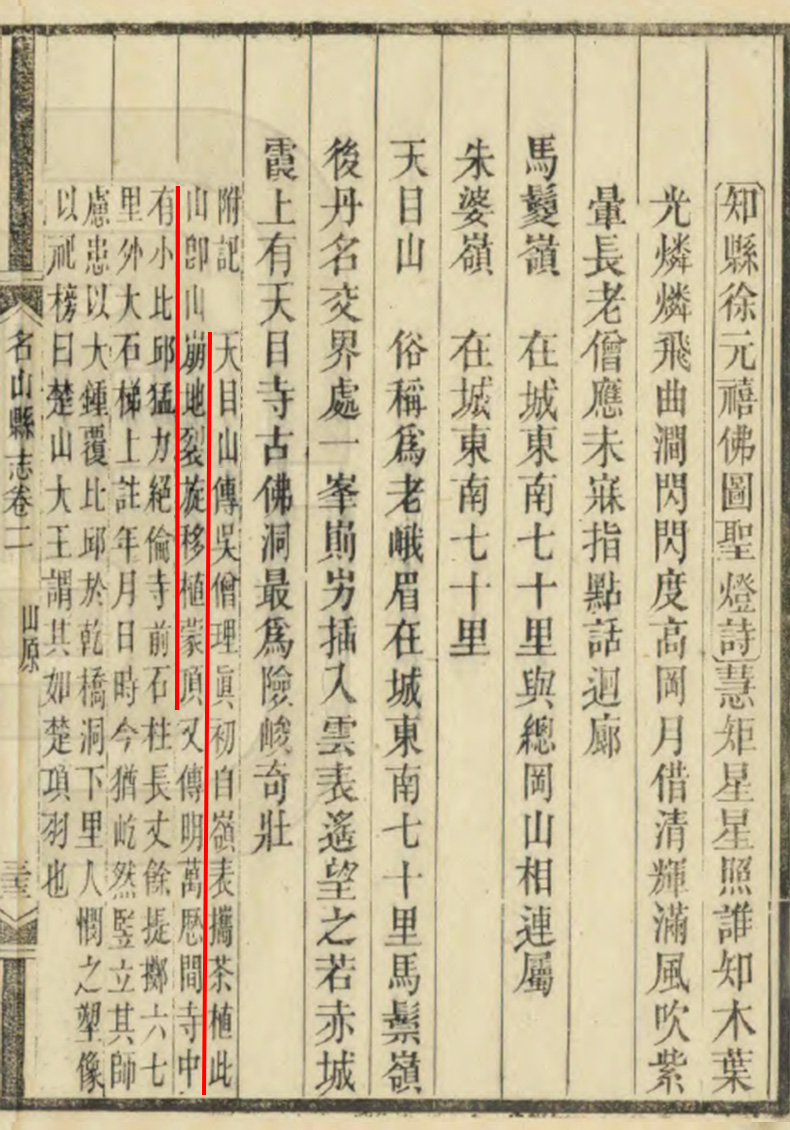 知縣徐元禧佛圖聖燈詩慧炬星星照誰知木葉
光燐燐飛曲澗閃閃度高岡月借清輝滿風吹紫
暈長老僧應未寐指點話迴廊
馬鬉嶺 在城東南七十里與總岡山相連屬
朱婆嶺 在城東南七十里
天目山 俗稱爲老峨眉在城東南七十里馬鬃嶺
後丹名交界處一峯崱屴插入雲表遙望之若赤城
霞上有天目寺古佛洞最爲險峻奇壯
附記 天目山傳吳僧理眞初自嶺表攜茶植此
山卽山崩地裂旋移植蒙頂又傳明萬厯間寺中
有小比邱猛力絕倫寺前石柱長丈餘提擲六七
里外大石梯上註年月日時今猶屹然豎立其師
慮患以大鍾覆比邱於乾橋洞下里人憫之塑像
以祀榜曰楚山大王謂其如楚項羽也
名山縣志卷二 山原